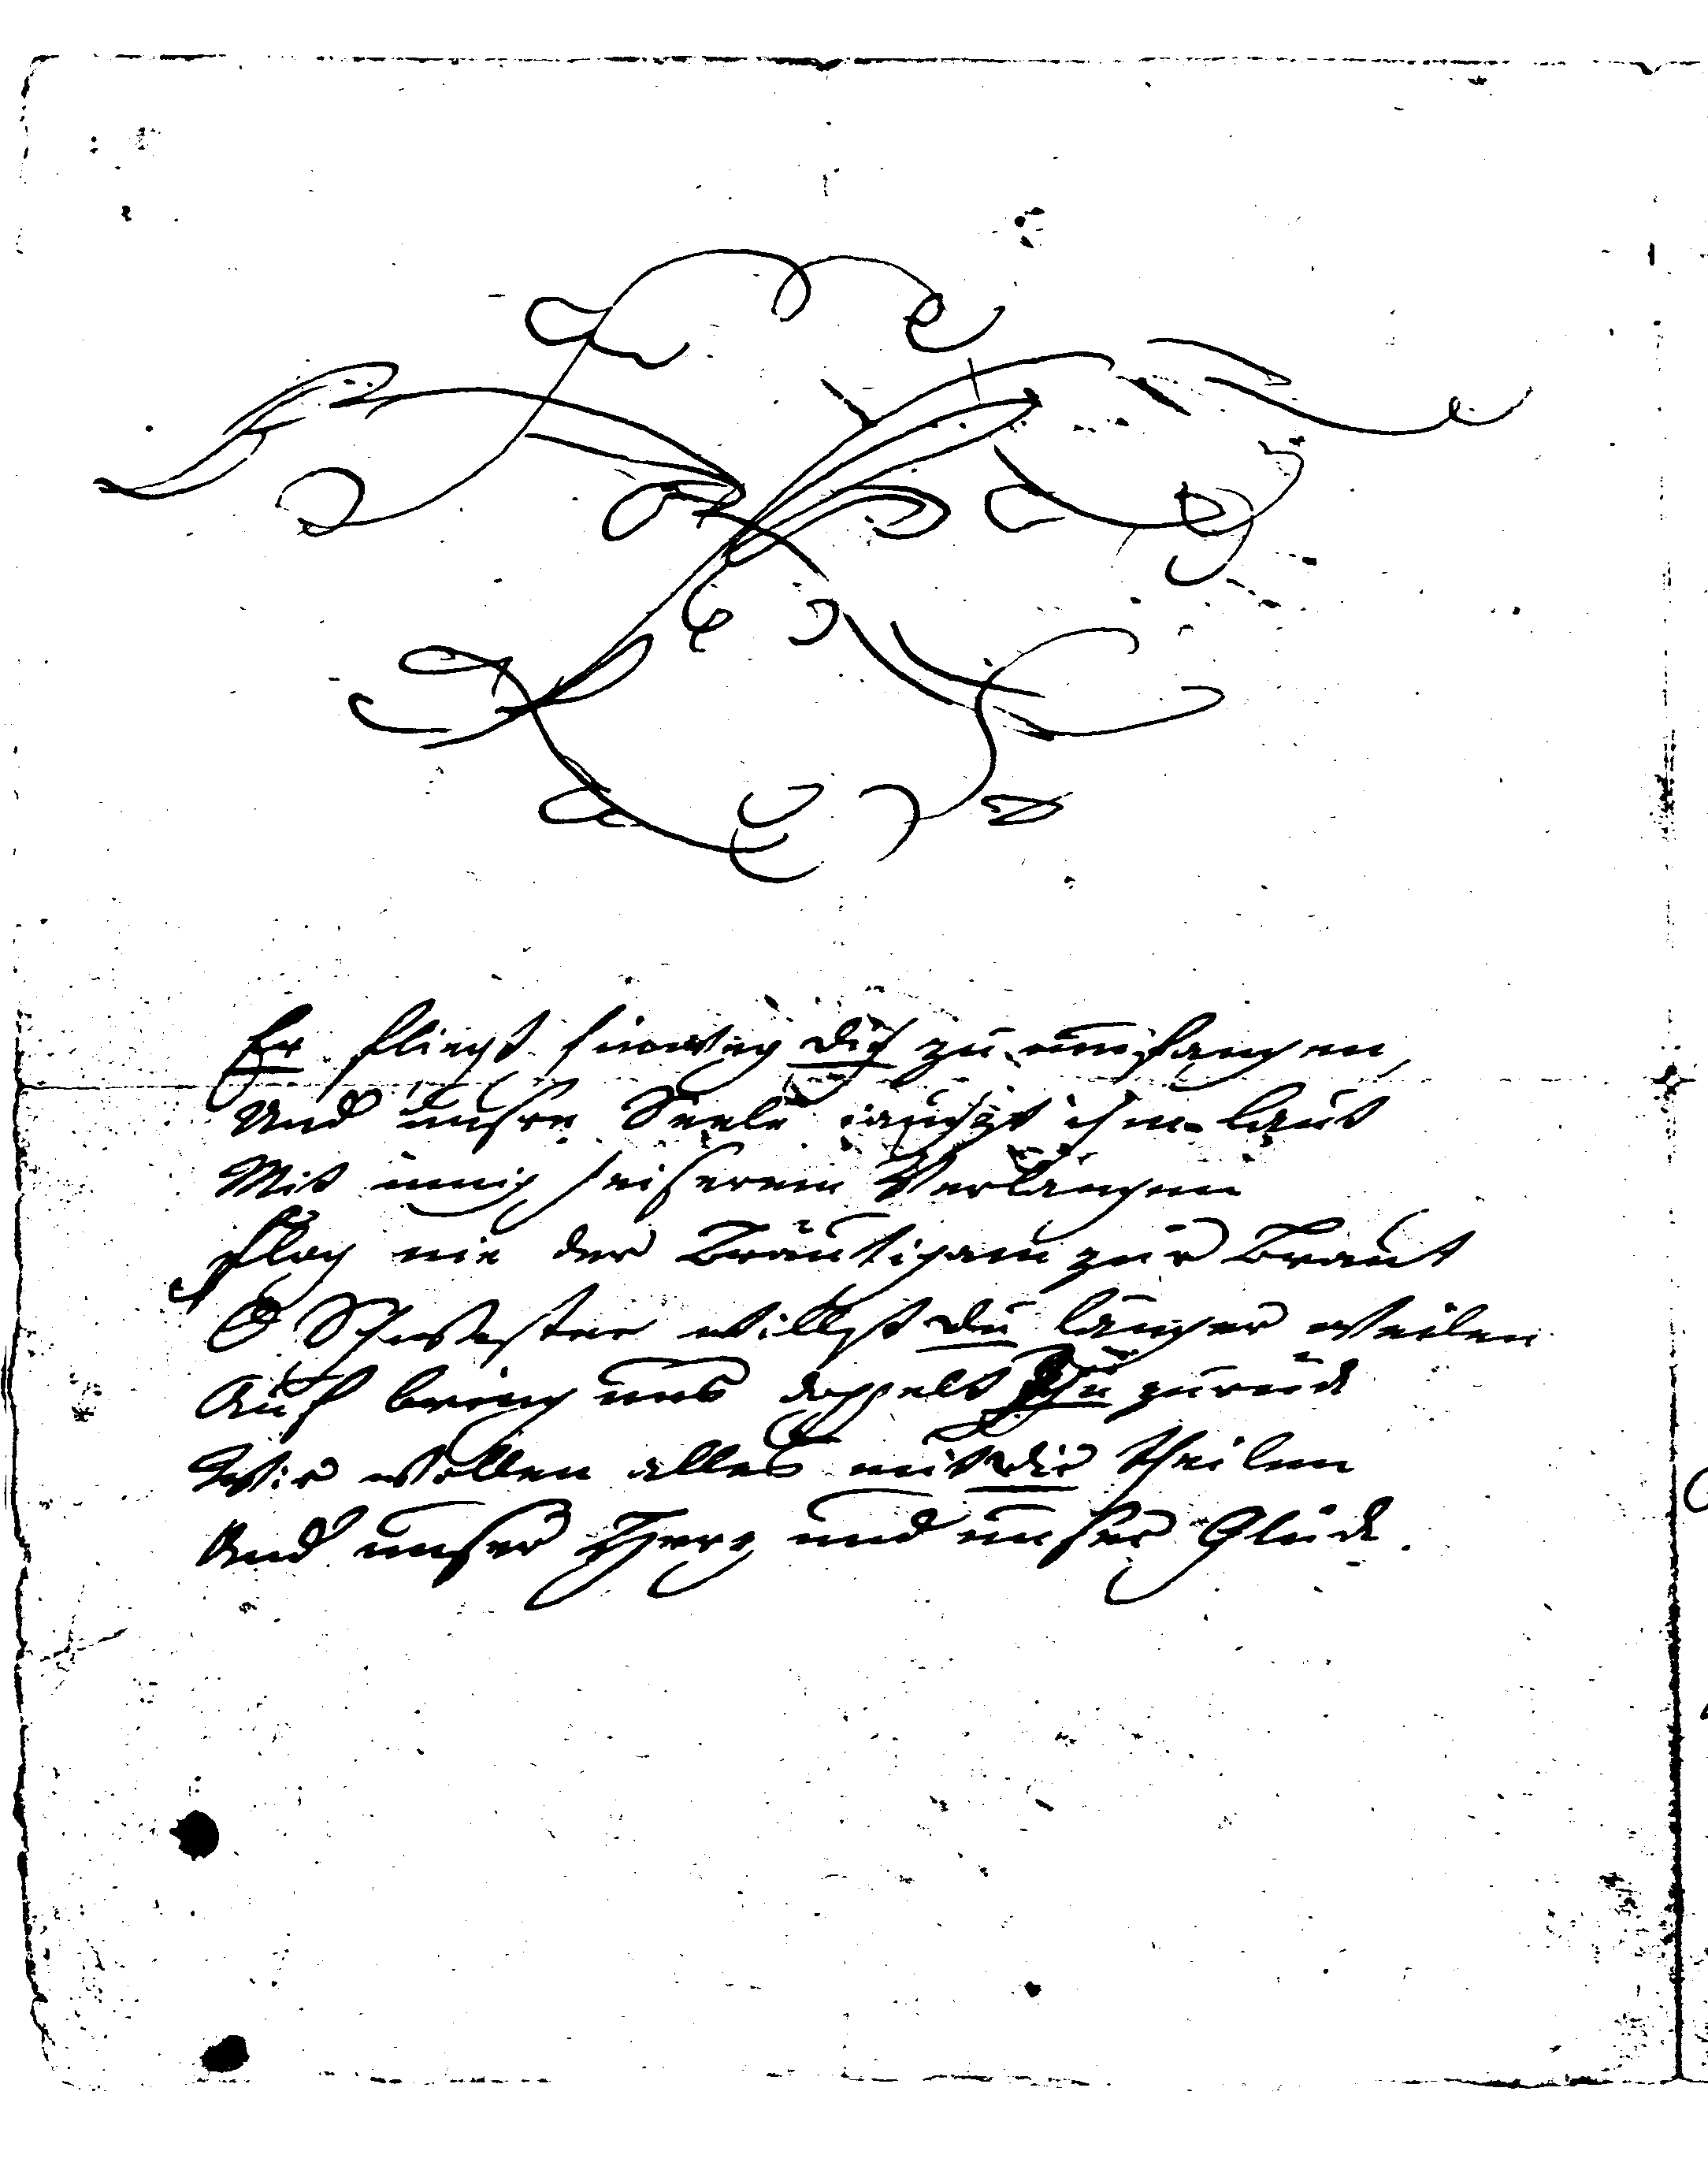 Er fliegt hinweg dich zu umfangen,
Und unsre Seele jauchzt ihm laut
Mit innig heiserem Verlangen
flog nie der Bräutigam zur Braut
O Schwester willst du länger weilen
Auf bring uns doppelt Ihn zurück
Wir wollen alles mit dir theilen
Und unser Herz und unser Glück.